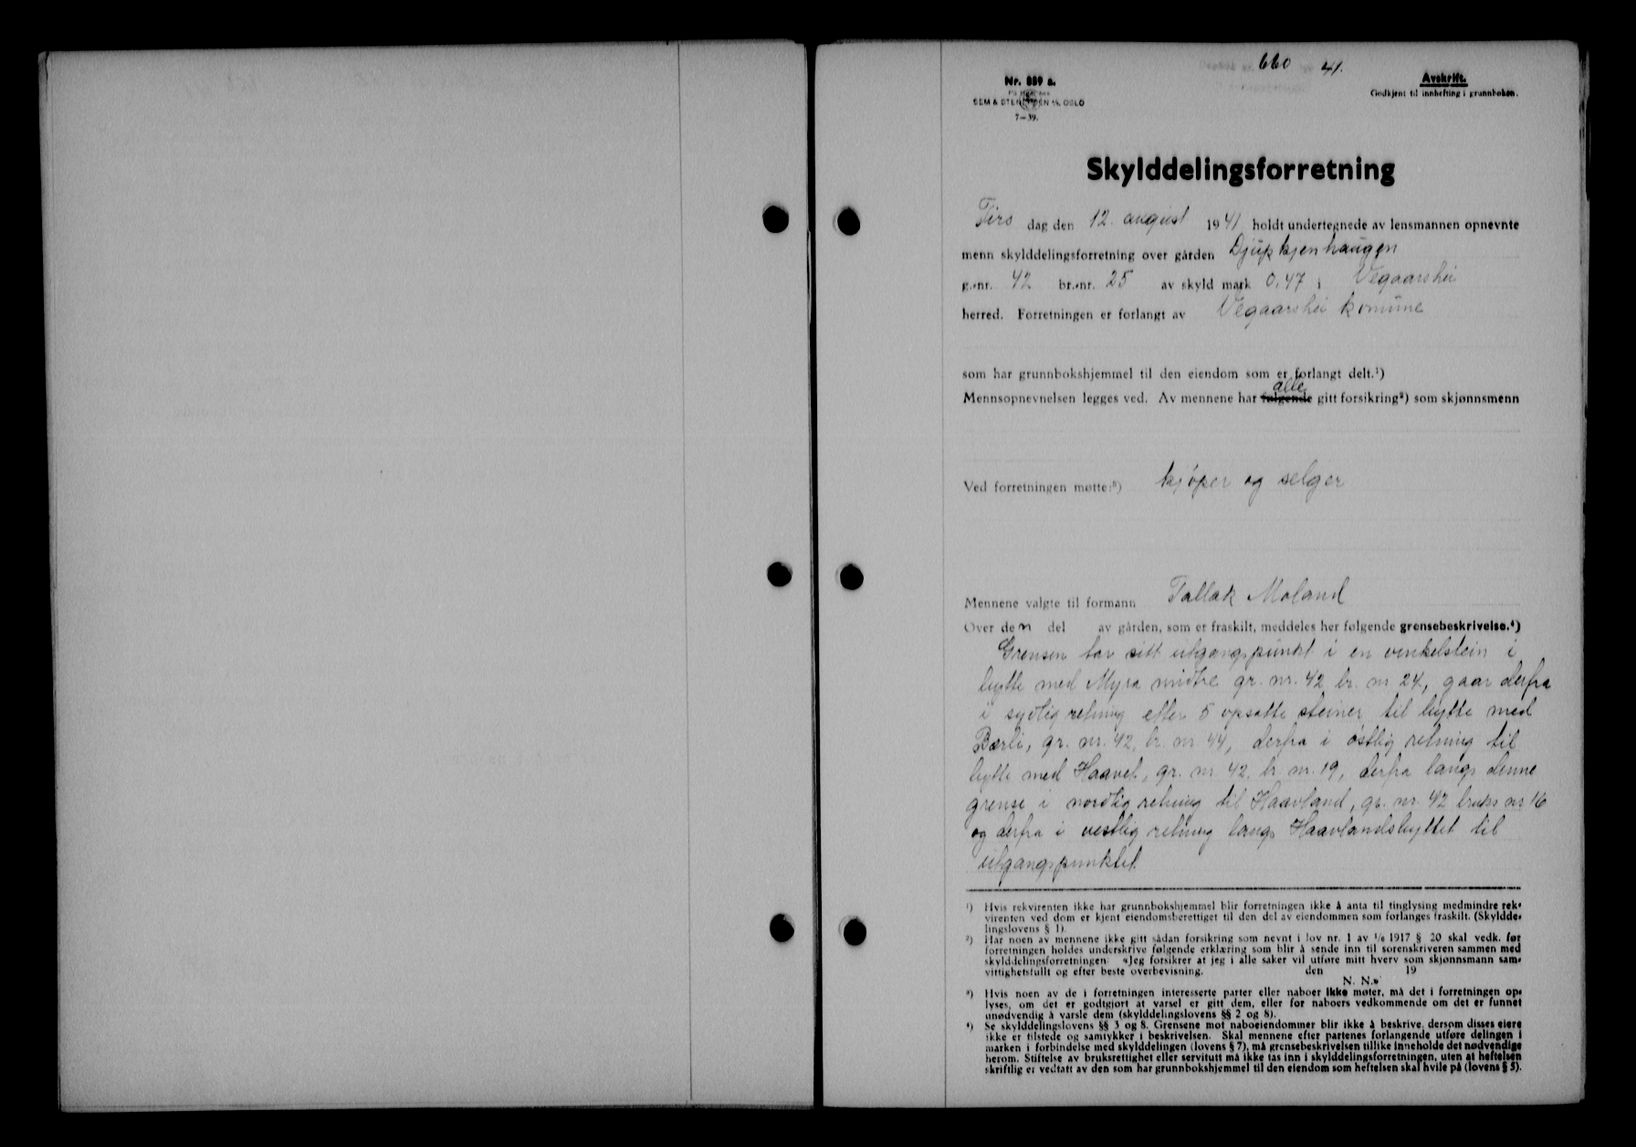 660 41.
Nr. 889 a.
Avskrift.
Godkjent til innhefting i grunnboken.
SEM & STENERSEN A/S, OSLO
7-39.
Skylddelingsforretning
Tirs dag den 12. august 1941 holdt undertegnede av lensmannen opnevnte
menn skylddelingsforretning over gården Djupkjenhaugen
g.-nr. 42 br.-nr. 25 av skyld mark 0,47 i Vegaarshei
herred. Forretningen er forlangt av Vegaarshei komune
som har grunnbokshjemmel til den eiendom som er forlangt delt.¹)
alle
Mennsopnevnelsen legges ved. Av mennene har følgende gitt forsikring²) som skjønnsmenn
Ved forretningen møtte:³) kjöper og selger
Mennene valgte til formann Tallak Moland
Over den del av gården, som er fraskilt, meddeles her følgende grensebeskrivelse.⁴)
Grensen tar sitt utgangspunkt i en vinkelstein i
bytte med Myra midtre gr. nr. 42 br. nr 24, gaar derfra
i sydlig retning efter 5 opsatte steiner til bytte med
Bærli, gr. nr. 42, br. nr 44, derfra i østlig retning til
bytte med Haavet, gr. nr. 42, br. nr. 19, derfra langs denne
grense i nordlig retning til Haavland, gr. nr. 42 bruks nr 16
og derfra i vestlig retning langs Haavlandsbyttet til
utgangspunktet
¹) Hvis rekvirenten ikke har grunnbokshjemmel blir forretningen ikke å anta til tinglysing medmindre rek-
virenten ved dom er kjent eiendomsberettiget til den del av eiendommen som forlanges fraskilt. (Skyldde-
lingslovens § 1).
²) Har noen av mennene ikke gitt sådan forsikring som nevnt i lov nr. 1 av 1/6 1917 § 20 skal vedk. før
forretningen holdes underskrive følgende erklæring som blir å sende inn til sorenskriveren sammen med
skylddelingsforretningen: «Jeg forsikrer at jeg i alle saker vil utføre mitt hverv som skjønnsmann sam-
vittighetsfullt og efter beste overbevisning. den 19
N. N.»
³) Hvis noen av de i forretningen interesserte parter eller naboer ikke møter, må det i forretningen op-
lyses, om det er godtgjort at varsel er gitt dem, eller for naboers vedkommende om det er funnet
unødvendig å varsle dem (skylddelingslovens §§ 2 og 8).
⁴) Se skylddelingslovens §§ 3 og 8. Grensene mot naboeiendommer blir ikke å beskrive, dersom disses eiere
ikke er tilstede og samtykker i beskrivelsen. Skal mennene efter partenes forlangende utføre delingen i
marken i forbindelse med skylddelingen (lovens § 7), må grensebeskrivelsen tillike inneholde det nødvendige
herom. Stiftelse av bruksrettighet eller servitutt må ikke tas inn i skylddelingsforretningen, uten at heftelsen
skriftlig er vedtatt av den som har grunnbokshjemmel til den eiendom som heftelsen skal hvile på (lovens § 5).